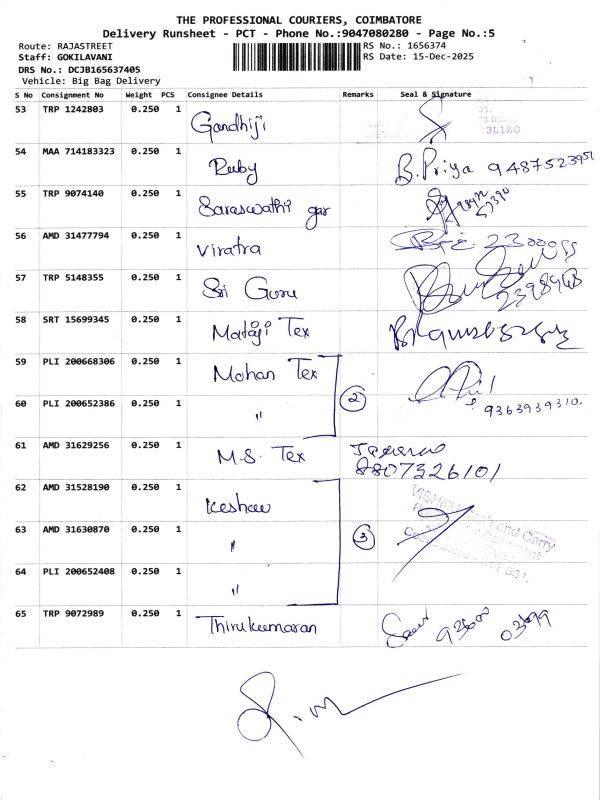 THE PROFESSIONAL COURIERS, COIMBATORE
Delivery Runsheet - PCT - Phone No.:9047080280 - Page No.:5
Route: RAJASTREET RS No.: 1656374
Staff: GOKILAVANI RS Date: 15-Dec-2025
DRS No.: DCJB165637405
Vehicle: Big Bag Delivery
S No Consignment No Weight PCS Consignee Details Remarks Seal & Signature
53 TRP 1242803 0.250 1 Gandhiji
54 MAA 714183323 0.250 1 Ruby B.Priya 9487523951
55 TRP 9074140 0.250 1 Saraswathi gar
56 AMD 31477794 0.250 1 Viratra
57 TRP 5148355 0.250 1 Sri Guru
58 SRT 15699345 0.250 1 Mataji Tex
59 PLI 200668306 0.250 1 Mohan Tex
60 PLI 200652386 0.250 1 " 2 9363939310.
61 AMD 31629256 0.250 1 M.S. Tex 8807326101
62 AMD 31528190 0.250 1 Keshav
63 AMD 31630870 0.250 1 " 3 and Carry
64 PLI 200652408 0.250 1 "
65 TRP 9072989 0.250 1 Thirukumaran